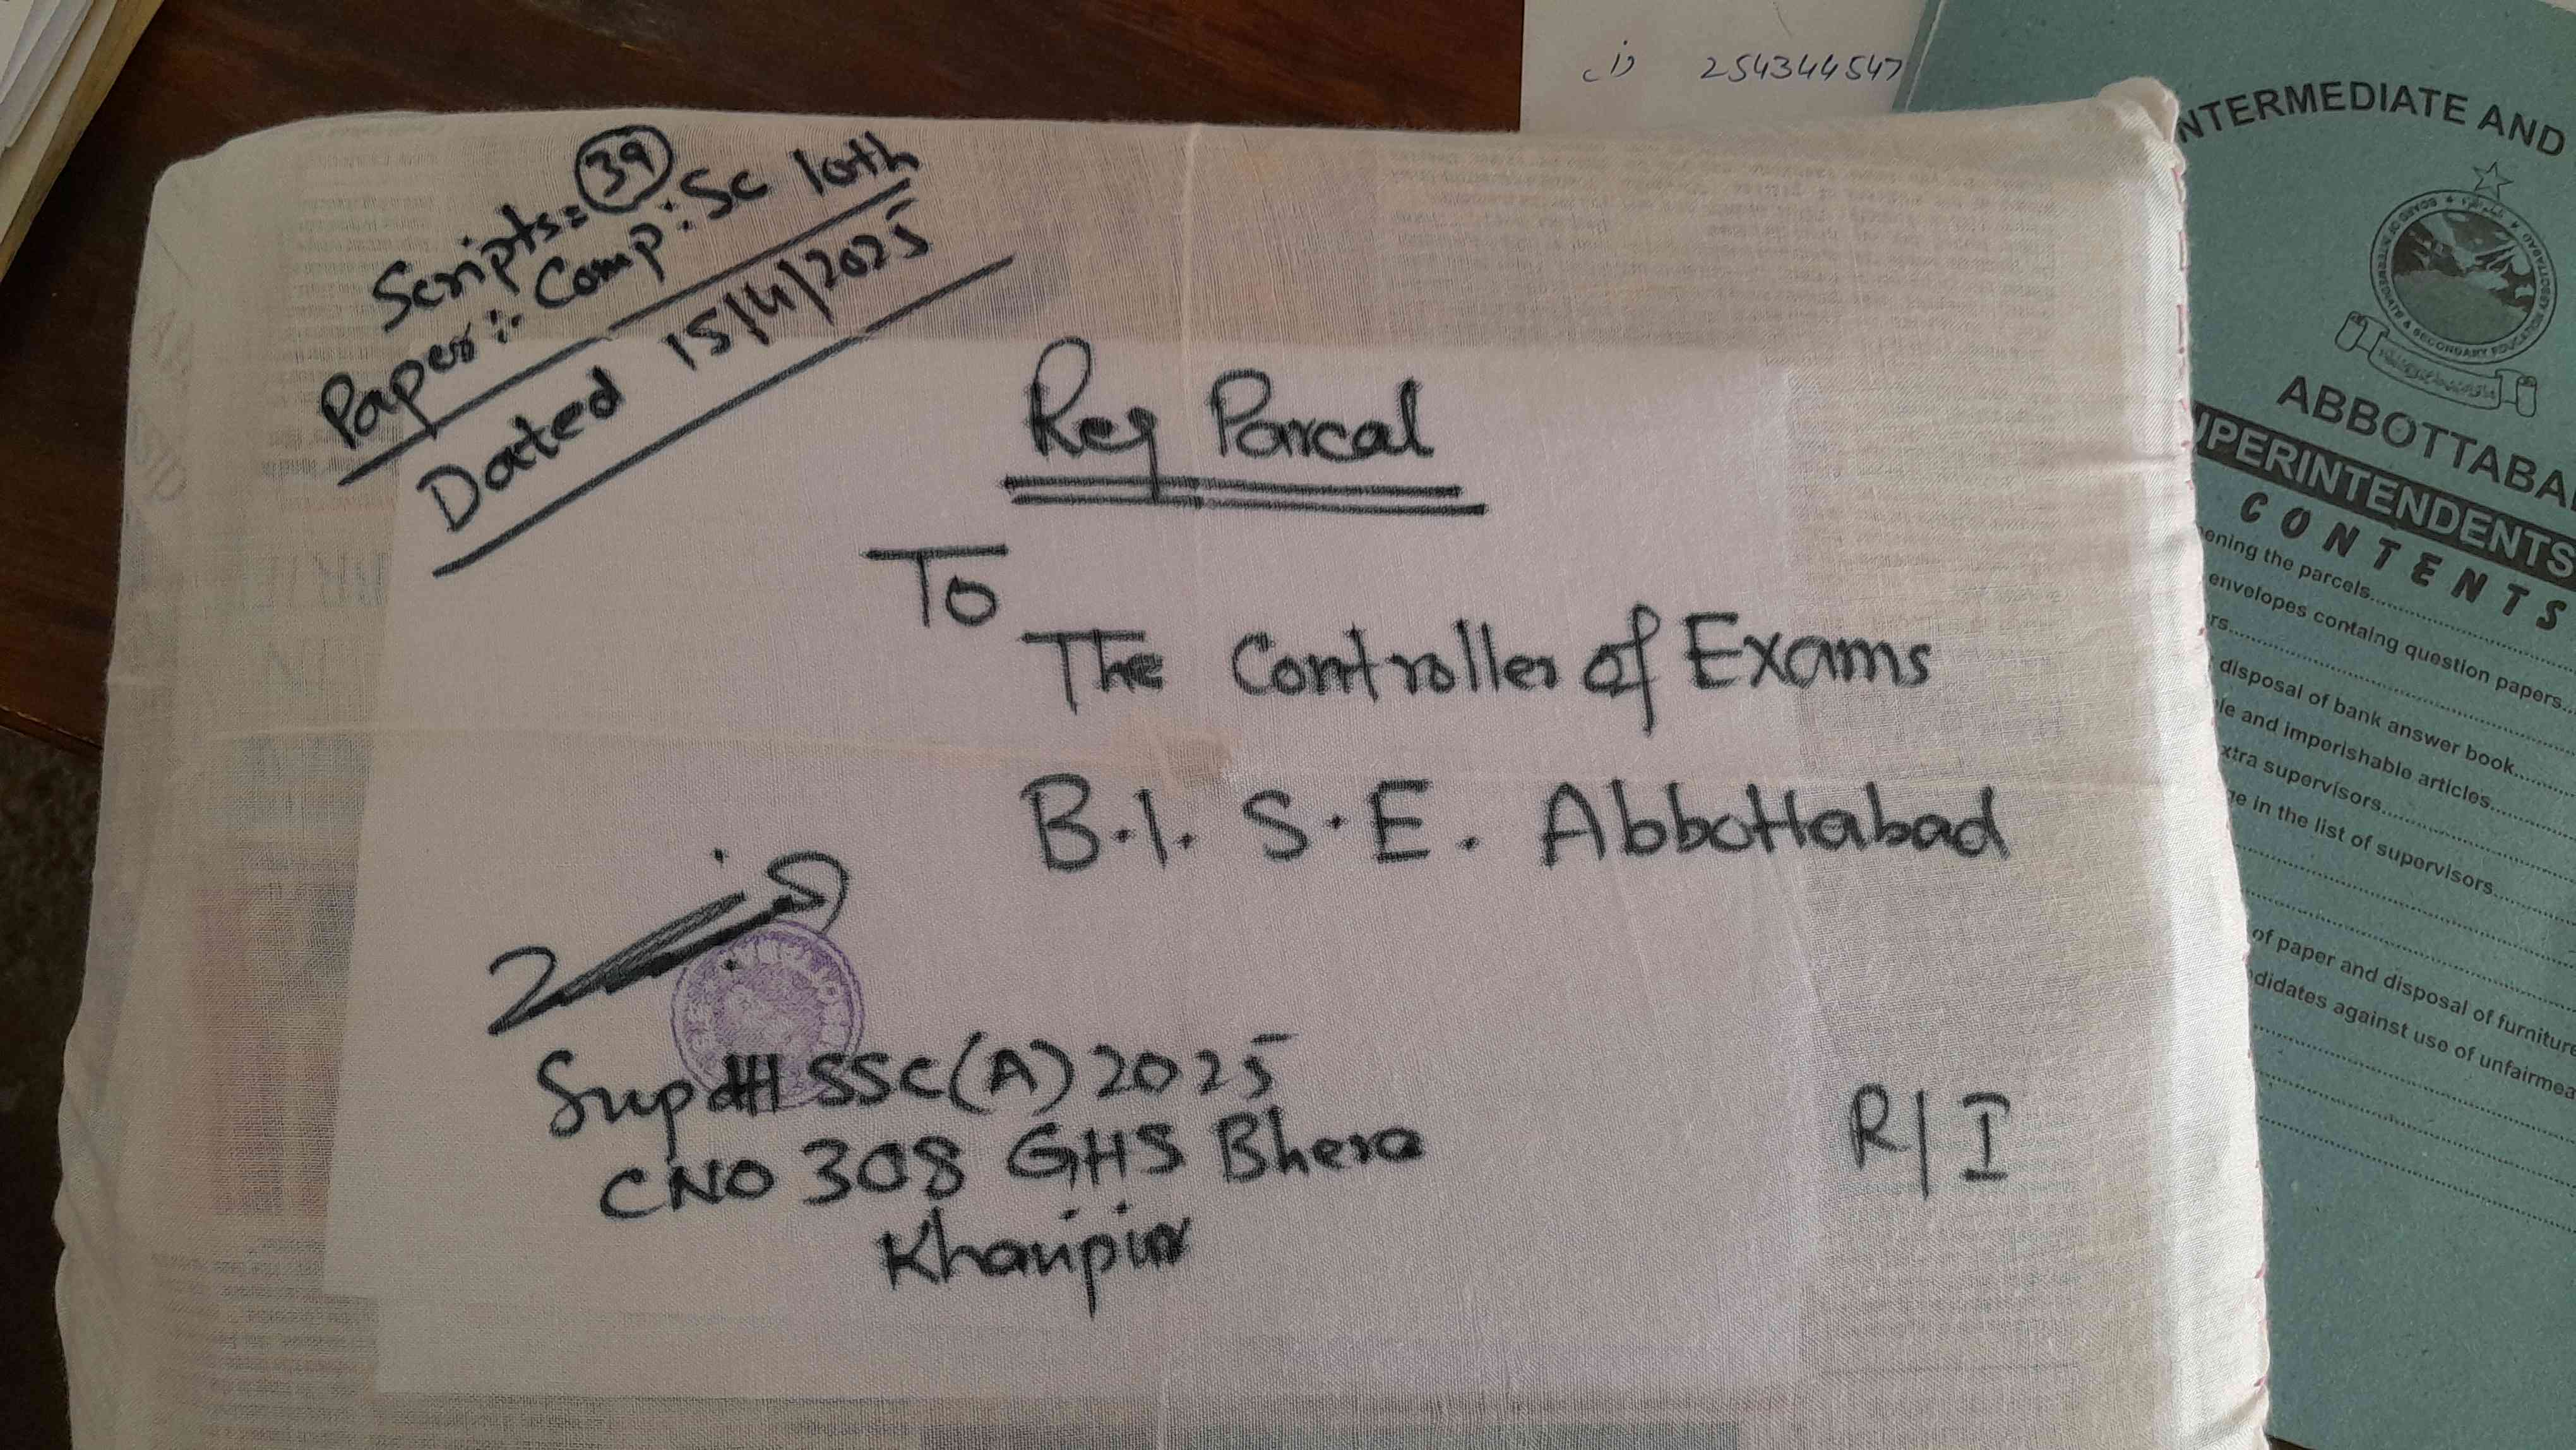 Scripts = 39
Paper :- Comp: Sc 10th
Dated 15/4/2025
Reg Parcal
To
The Controller of Exams
B.I. S.E. Abbottabad
Supdtt SSC(A) 2025
CNO 308 GHS Bhera
Khanpur
R/I
(i) 254344547
NTERMEDIATE AND
ABBOTTABA
UPERINTENDENTS
CONTENTS
ening the parcels
envelopes containg question papers
rs
disposal of bank answer book
le and imperishable articles
xtra supervisors
ge in the list of supervisors
of paper and disposal of furniture
didates against use of unfairmea